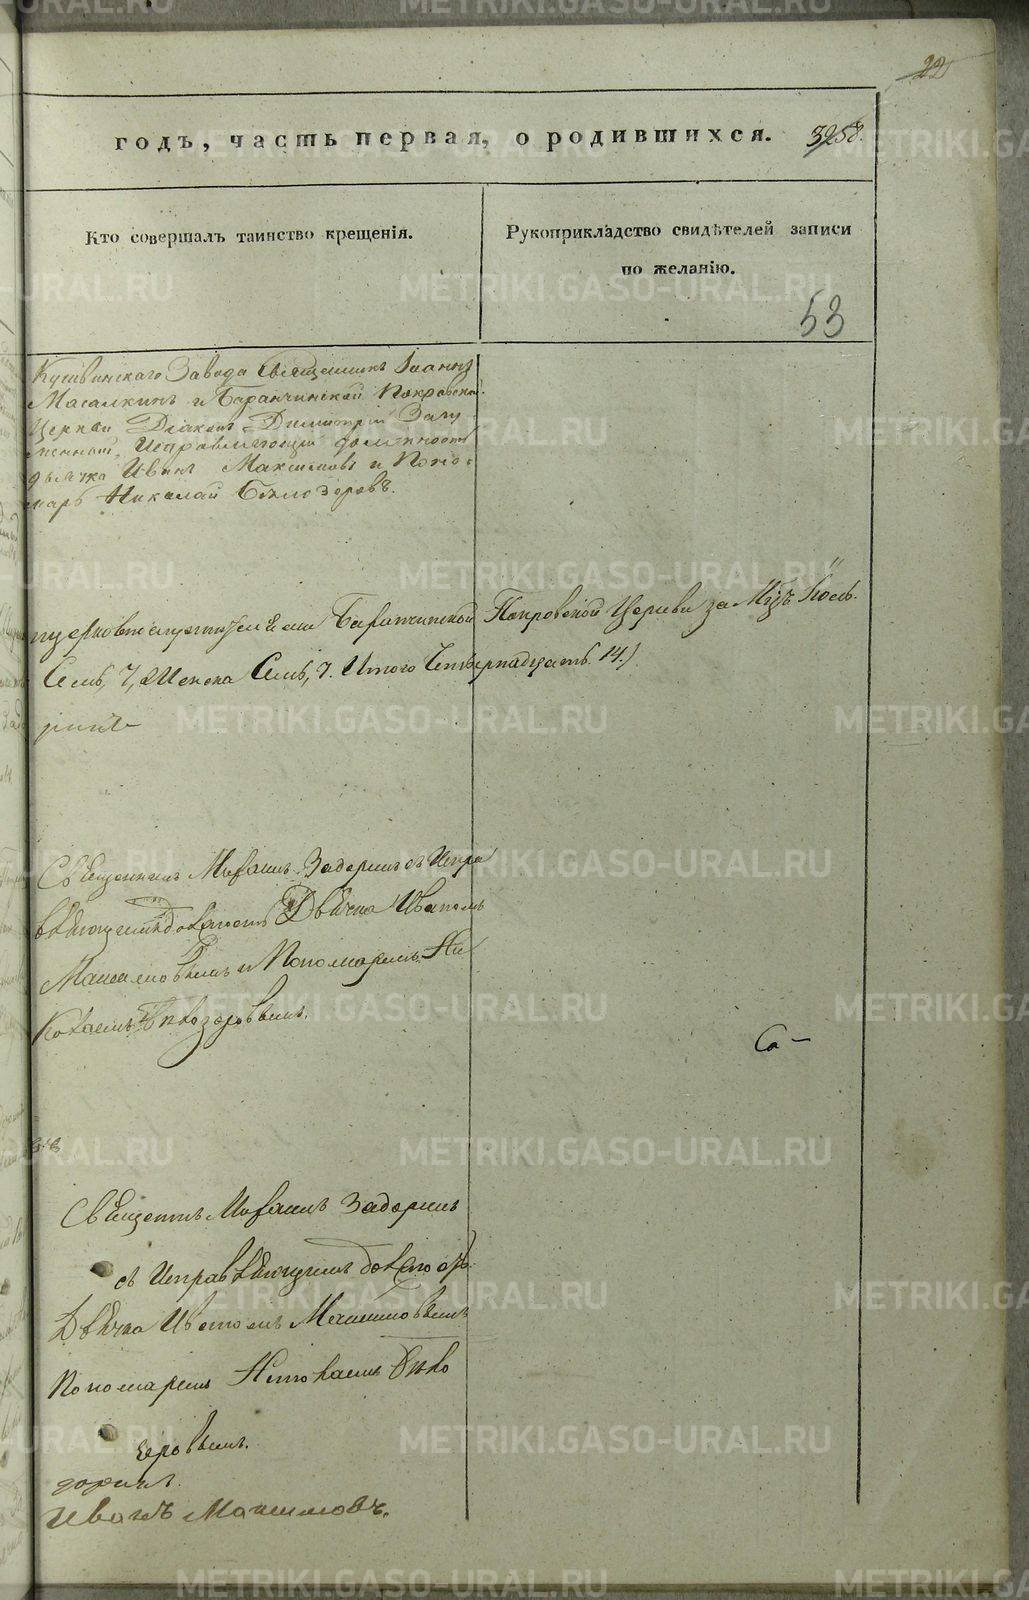 22
годъ, часть первая, о родившихся. 3258.
Кто совершалъ таинство крещенія.
Рукоприкладство свидѣтелей записи
по желанію.
53
Кушвинскаго Завода Священникъ Іоаннъ
Масалкинъ и Баранчинской Покровской
Церкви Діаконъ Димитрій
Исправляющій должность
дьячка Иванъ Максимовъ и Поно-
марь Николай Бѣлозеровъ.
Баранчинской Покровской Церкви за М-цъ
Семь, 7, Женска Семь, 7. Итого Четырнадцать 14.)
Священникъ Михаилъ Задоринъ съ Испра
вляющимъ должность Дьячка Иваномъ
Максимовымъ и Пономаремъ Ни
колаемъ Бѣлозеровымъ.
Са-
Священникъ Михаилъ Задоринъ
съ Исправляющимъ должность
Дьячка Иваномъ Максимовымъ
Пономаремъ Николаемъ Бѣло
зеровымъ.
доринъ.
Иванъ Максимовъ.
METRIKI.GASO-URAL.RU